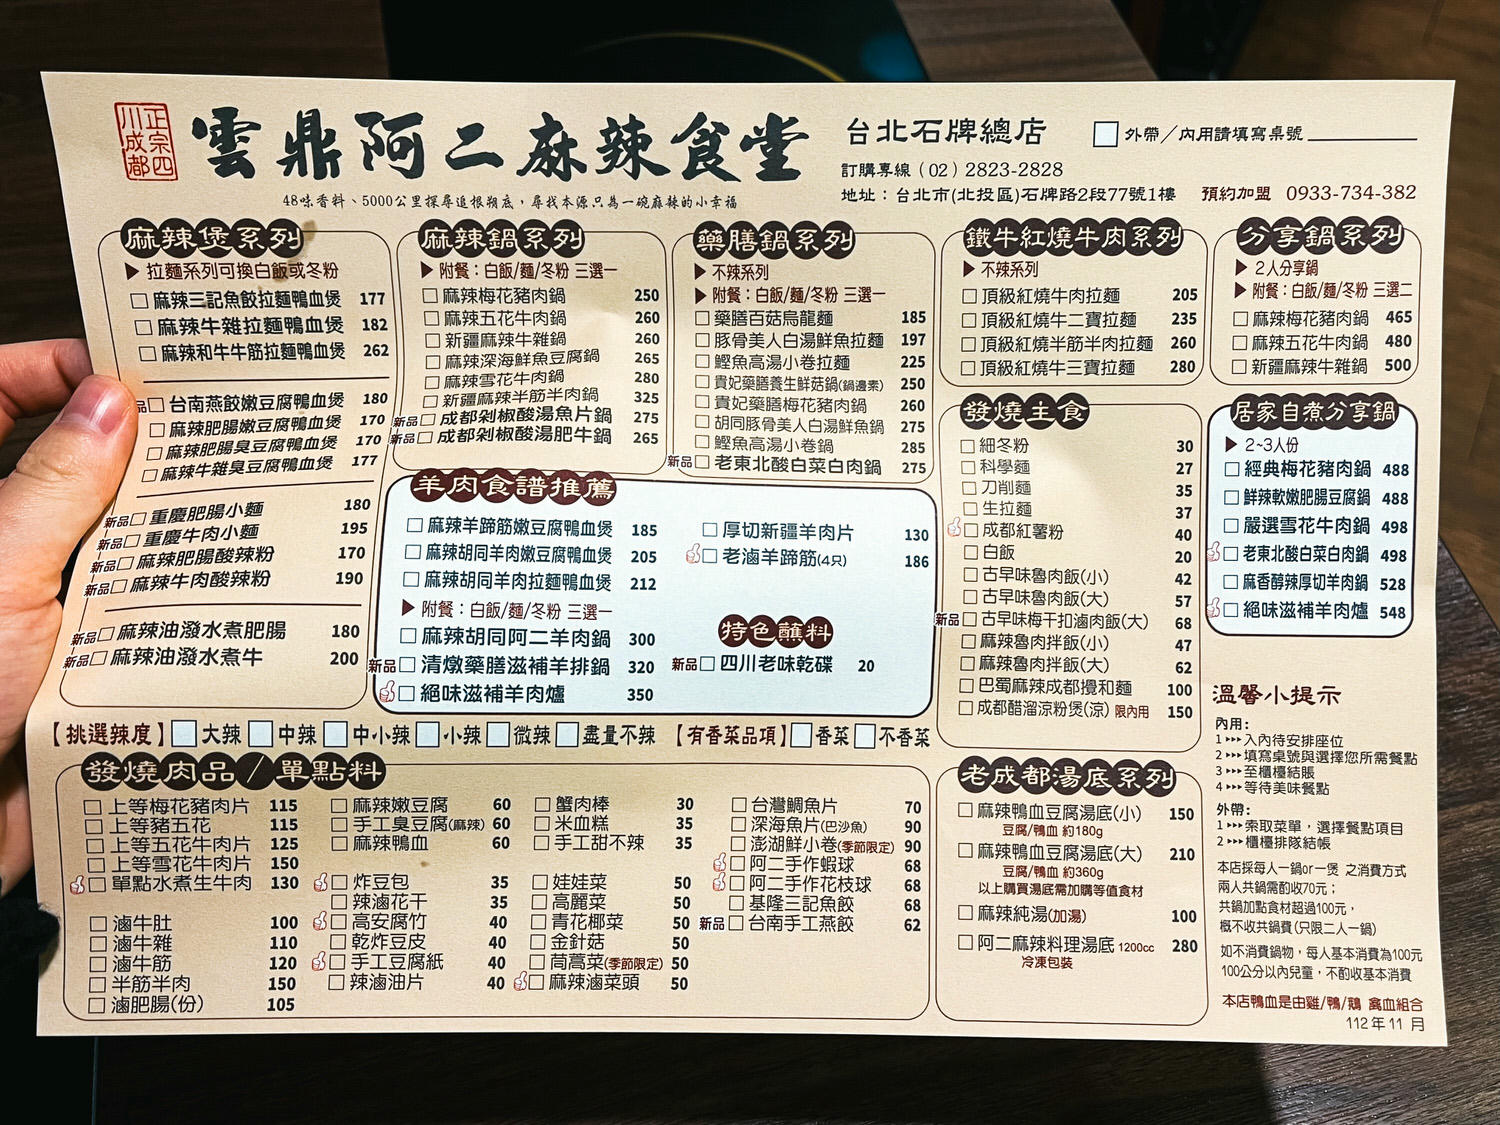 正宗四川成都
雲鼎阿二麻辣食堂
48味香料、5000公里探尋追根朔底，尋找本源只為一碗麻辣的小幸福
台北石牌總店
訂購專線（02）2823-2828
地址：台北市(北投區)石牌路2段77號1樓
預約加盟 0933-734-382
□外帶／內用請填寫桌號
麻辣煲系列
▶拉麵系列可換白飯或冬粉
□麻辣三記魚餃拉麵鴨血煲 177
□麻辣牛雜拉麵鴨血煲 182
□麻辣和牛牛筋拉麵鴨血煲 262
品□台南燕餃嫩豆腐鴨血煲 180
□麻辣肥腸嫩豆腐鴨血煲 170
□麻辣肥腸臭豆腐鴨血煲 170
□麻辣牛雜臭豆腐鴨血煲 177
新品□重慶肥腸小麵 180
新品□重慶牛肉小麵 195
新品□麻辣肥腸酸辣粉 170
新品□麻辣牛肉酸辣粉 190
新品□麻辣油潑水煮肥腸 180
新品□麻辣油潑水煮牛 200
麻辣鍋系列
▶附餐：白飯/麵/冬粉 三選一
□麻辣梅花豬肉鍋 250
□麻辣五花牛肉鍋 260
□新疆麻辣牛雜鍋 260
□麻辣深海鮮魚豆腐鍋 265
□麻辣雪花牛肉鍋 280
□新疆麻辣半筋半肉鍋 325
新品□成都剁椒酸湯魚片鍋 275
新品□成都剁椒酸湯肥牛鍋 265
藥膳鍋系列
▶不辣系列
▶附餐：白飯/麵/冬粉 三選一
□藥膳百菇烏龍麵 185
□豚骨美人白湯鮮魚拉麵 197
□鰹魚高湯小卷拉麵 225
□貴妃藥膳養生鮮菇鍋(鍋邊素) 250
□貴妃藥膳梅花豬肉鍋 260
□胡同豚骨美人白湯鮮魚鍋 275
□鰹魚高湯小卷鍋 285
新品□老東北酸白菜白肉鍋 275
鐵牛紅燒牛肉系列
▶不辣系列
□頂級紅燒牛肉拉麵 205
□頂級紅燒牛二寶拉麵 235
□頂級紅燒半筋半肉拉麵 260
□頂級紅燒牛三寶拉麵 280
分享鍋系列
▶2人分享鍋
▶附餐：白飯/麵/冬粉 三選二
□麻辣梅花豬肉鍋 465
□麻辣五花牛肉鍋 480
□新疆麻辣牛雜鍋 500
羊肉食譜推薦
□麻辣羊蹄筋嫩豆腐鴨血煲 185
□麻辣胡同羊肉嫩豆腐鴨血煲 205
□麻辣胡同羊肉拉麵鴨血煲 212
▶附餐：白飯/麵/冬粉 三選一
□麻辣胡同阿二羊肉鍋 300
新品□清燉藥膳滋補羊排鍋 320
□絕味滋補羊肉爐 350
□厚切新疆羊肉片 130
□老滷羊蹄筋(4只) 186
特色蘸料
新品□四川老味乾碟 20
發燒主食
□細冬粉 30
□科學麵 27
□刀削麵 35
□生拉麵 37
□成都紅薯粉 40
□白飯 20
□古早味魯肉飯(小) 42
□古早味魯肉飯(大) 57
新品□古早味梅干扣滷肉飯(大) 68
□麻辣魯肉拌飯(小) 47
□麻辣魯肉拌飯(大) 62
□巴蜀麻辣成都攪和麵 100
□成都醋溜涼粉煲(涼) 限內用 150
居家自煮分享鍋
▶2~3人份
□經典梅花豬肉鍋 488
□鮮辣軟嫩肥腸豆腐鍋 488
□嚴選雪花牛肉鍋 498
□老東北酸白菜白肉鍋 498
□麻香醇辣厚切羊肉鍋 528
□絕味滋補羊肉爐 548
【挑選辣度】□大辣 □中辣 □中小辣 □小辣 □微辣 □盡量不辣 【有香菜品項】□香菜 □不香菜
發燒肉品／單點料
□上等梅花豬肉片 115
□上等豬五花 115
□上等五花牛肉片 125
□上等雪花牛肉片 150
□單點水煮生牛肉 130
□滷牛肚 100
□滷牛雜 110
□滷牛筋 120
□半筋半肉 150
□滷肥腸(份) 105
□麻辣嫩豆腐 60
□手工臭豆腐(麻辣) 60
□麻辣鴨血 60
□炸豆包 35
□辣滷花干 35
□高安腐竹 40
□乾炸豆皮 40
□手工豆腐紙 40
□辣滷油片 40
□蟹肉棒 30
□米血糕 35
□手工甜不辣 35
□娃娃菜 50
□高麗菜 50
□青花椰菜 50
□金針菇 50
□茼蒿菜(季節限定) 50
□麻辣滷菜頭 50
□台灣鯛魚片 70
□深海魚片(巴沙魚) 90
□澎湖鮮小卷(季節限定) 90
□阿二手作蝦球 68
□阿二手作花枝球 68
□基隆三記魚餃 68
新品□台南手工燕餃 62
老成都湯底系列
□麻辣鴨血豆腐湯底(小) 150
豆腐/鴨血 約180g
□麻辣鴨血豆腐湯底(大) 210
豆腐/鴨血 約360g
以上購買湯底需加購等值食材
□麻辣純湯(加湯) 100
□阿二麻辣料理湯底 1200cc 280
冷凍包裝
溫馨小提示
內用:
1▸▸▸入內待安排座位
2▸▸▸填寫桌號與選擇您所需餐點
3▸▸▸至櫃檯結賬
4▸▸▸等待美味餐點
外帶:
1▸▸▸索取菜單，選擇餐點項目
2▸▸▸櫃檯排隊結帳
本店採每人一鍋or一煲 之消費方式
兩人共鍋需酌收70元；
共鍋加點食材超過100元，
概不收共鍋費(只限二人一鍋)
如不消費鍋物，每人基本消費為100元
100公分以內兒童，不酌收基本消費
本店鴨血是由雞/鴨/鵝 禽血組合
112年11 月